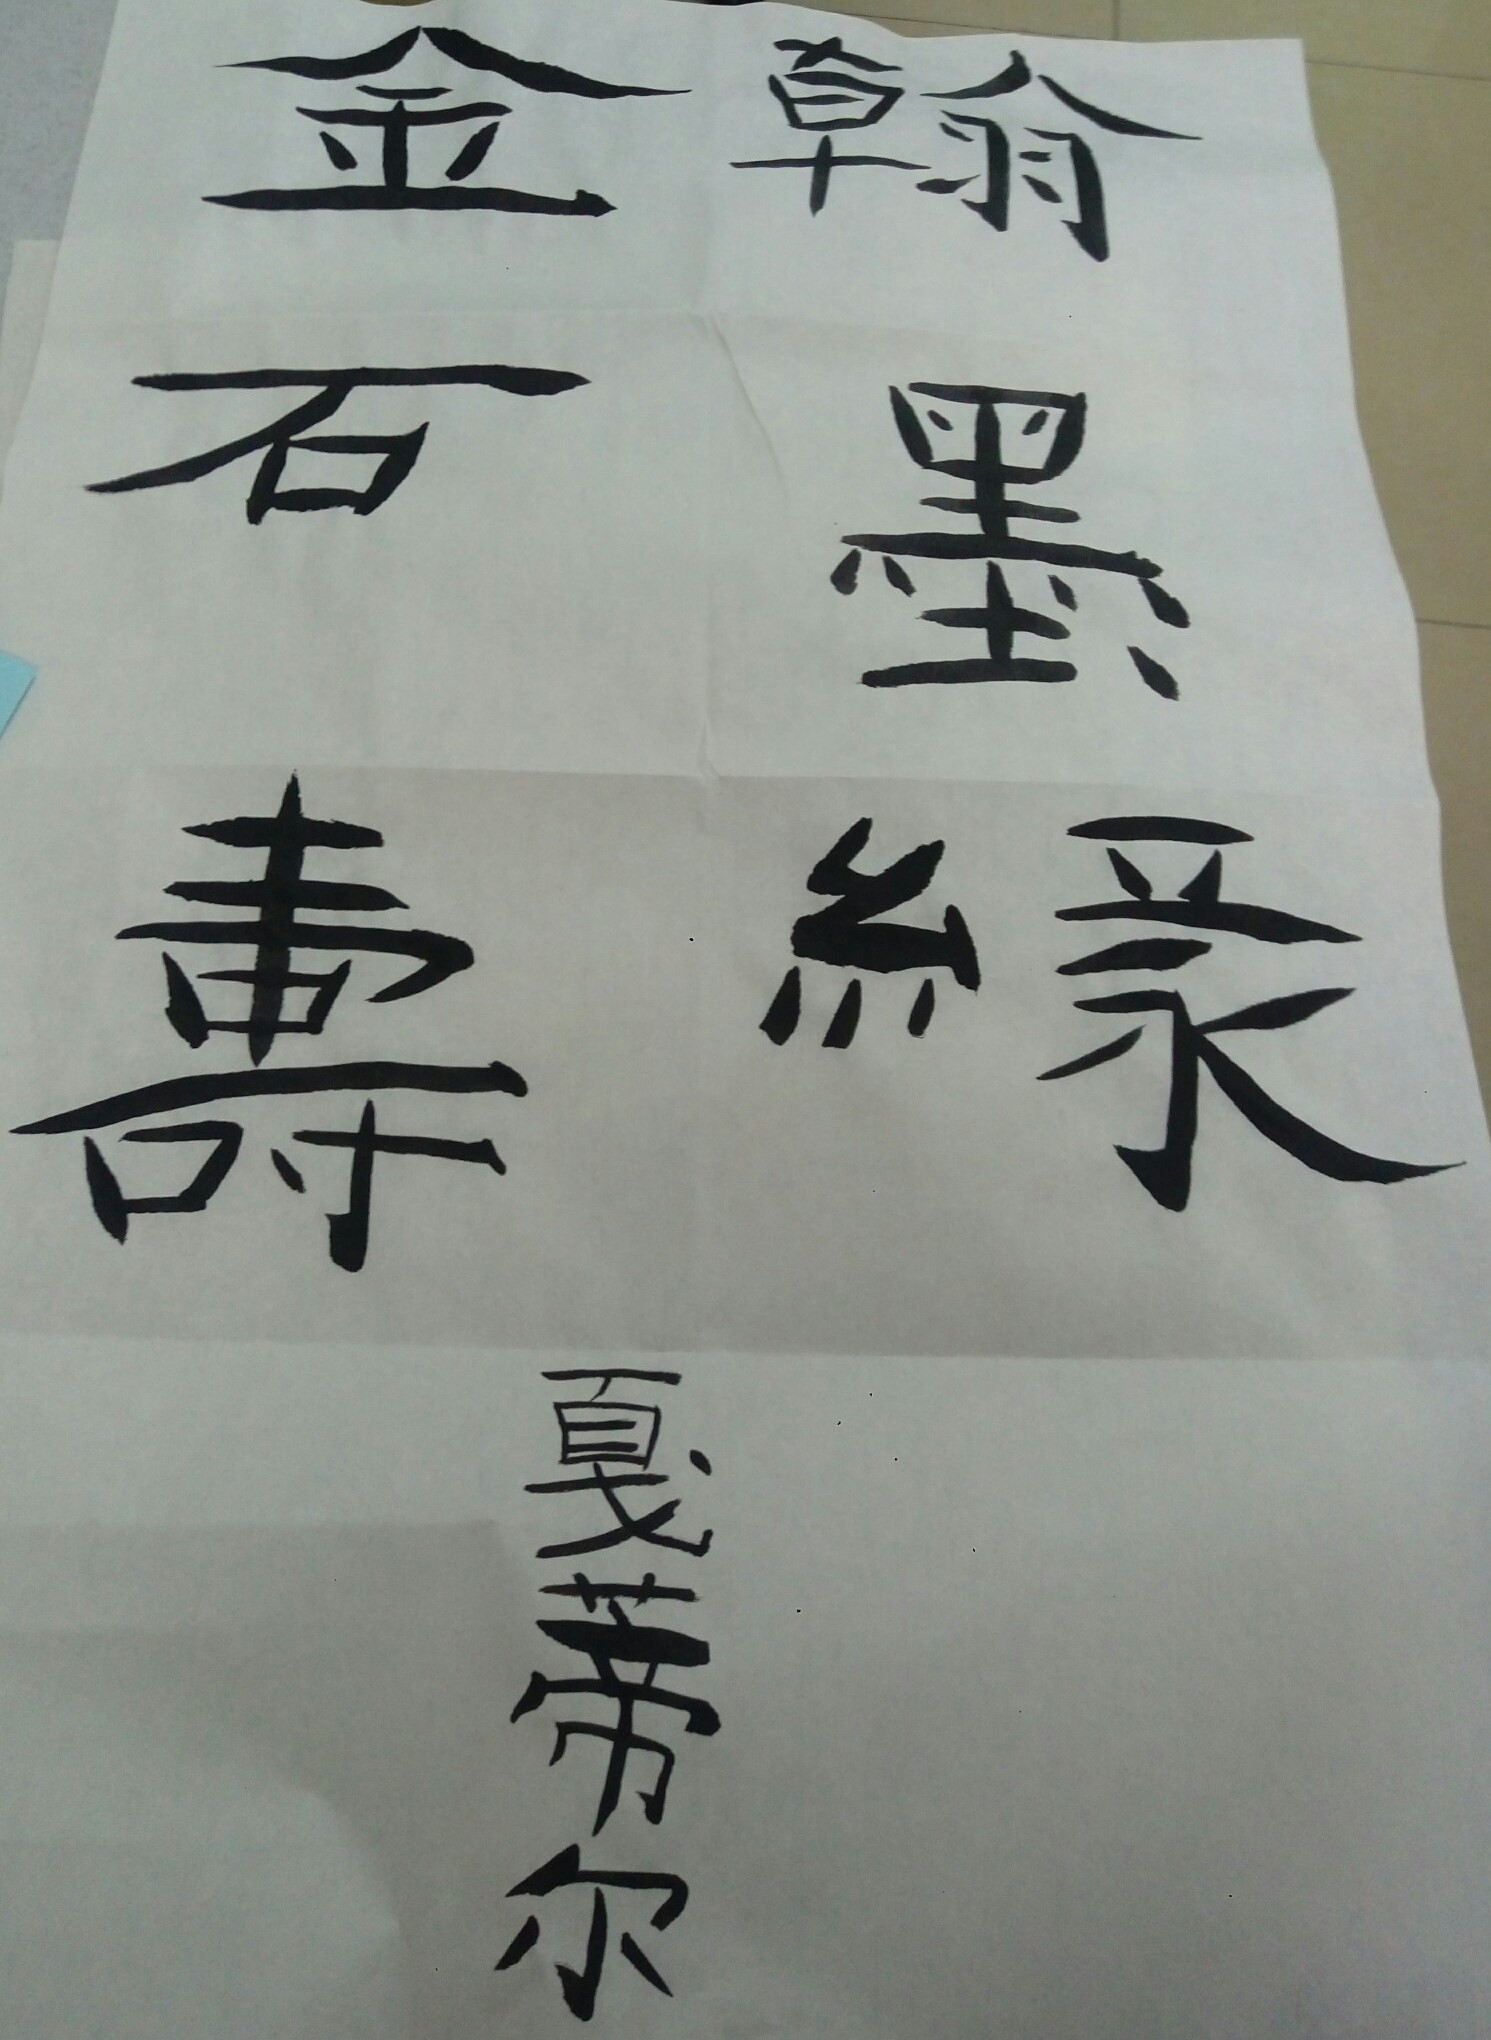 翰墨緣
金石壽
戛蒂尔